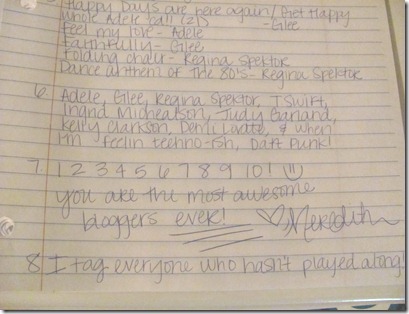 Happy Days are here again/Get Happy
Whole Adele ball (21) - Glee
Feel my love - Adele
Faithfully - Glee
Folding chair - Regina Spektor
Dance anthem of the 80's - Regina Spektor
6. Adele, Glee, Regina Spektor, T Swift,
Ingrid Michealson, Judy Garland,
Kelly Clarkson, Demi Lovato, & when
I'm feelin techno-ish, Daft Punk!
7. 1 2 3 4 5 6 7 8 9 10! =)
you are the most awesome
bloggers ever! ♡Meredith
8 I tag everyone who hasn't played along!